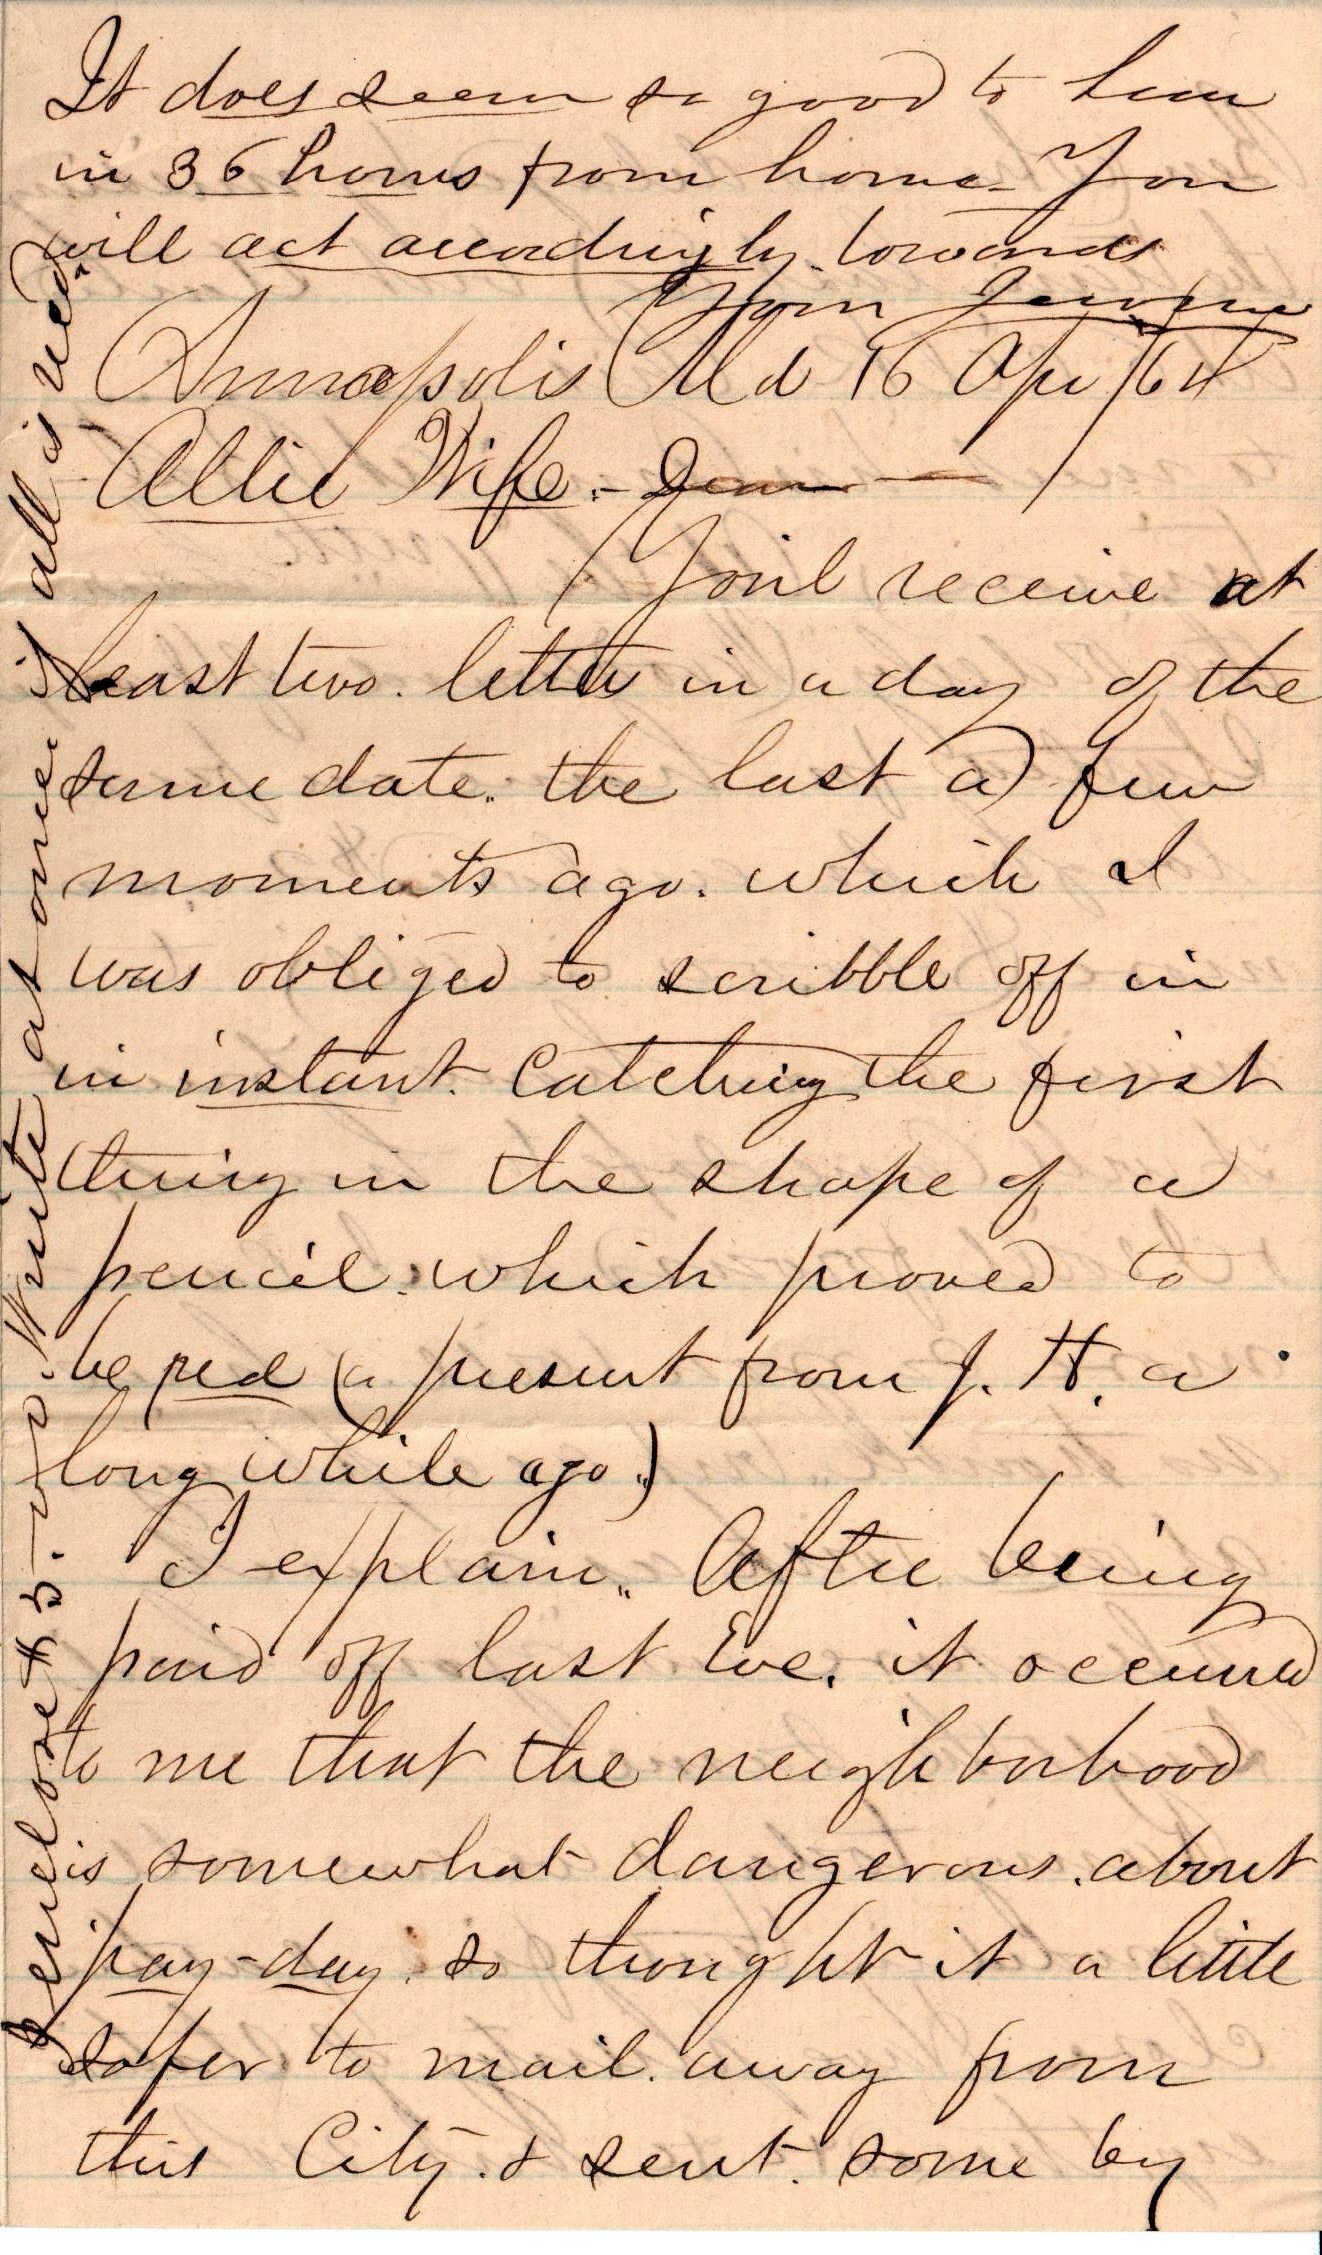 It does seem so good to hear
in 36 hours from home - You
will act accordingly. towards
Your Jerome
Annapolis Md 16 Apr /64
Allie Wife. - Dear —
You'l receive at
least two. letters in a day of the
same date. the last a few
moments ago. which I
was obliged to scribble off in
in instant. Catching the first
thing in the shape of a
pencil. which proved to
be red (a present from J. H. a
long while ago.)
I explain.. After being
paid off last Eve. it occurred
to me that the neighborhood
is somewhat dangerous. about
pay-day. so thought it a little
safer to mail. away from
this City. & sent. some by
I enclose $5. Write at once. if all is rec'd.